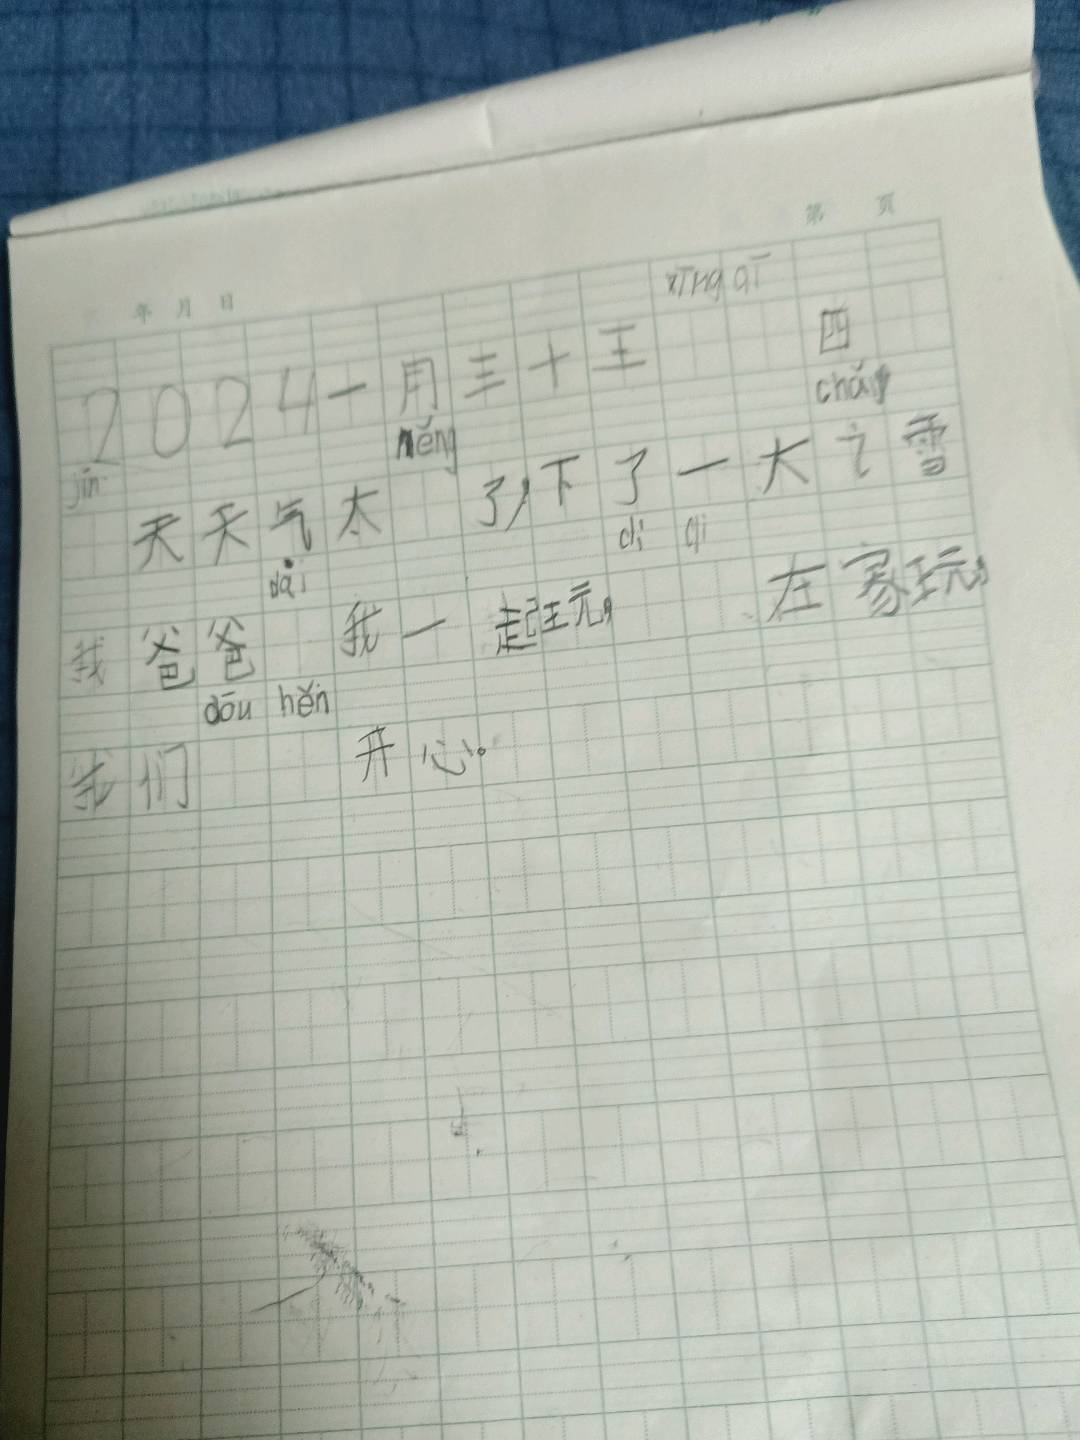 第 页
年 月 日
2024一月三十王 xīng qī 四
jīn天天气太něng了,下了一大chǎng雪
我爸爸dài我一起玩,di qi在家玩,
我们dōu hěn开心。